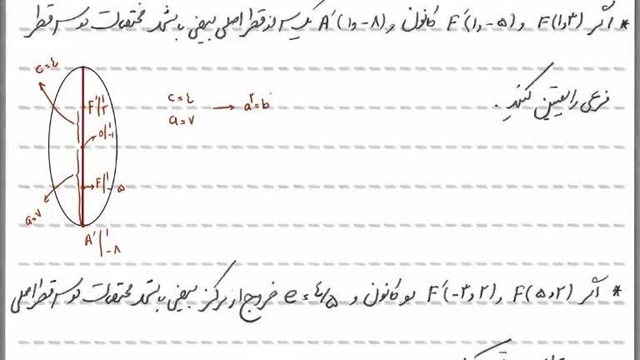 * اگر F(1,3) و F'(1,-5) کانون و A'(1,-8) یک سر از قطر اصلی بیضی باشد مختصات دو سر قطر
فرعی را تعیین کنید.
c=4
F'|1 3
o|1 -1
F|1 -5
a=7
A'|1 -8
c=4
a=7 → a²=b²
* اگر F(5,2) و F'(-3,2) دو کانون و e=4/5 خروج از مرکز بیضی باشد مختصات دو سر قطر اصلی